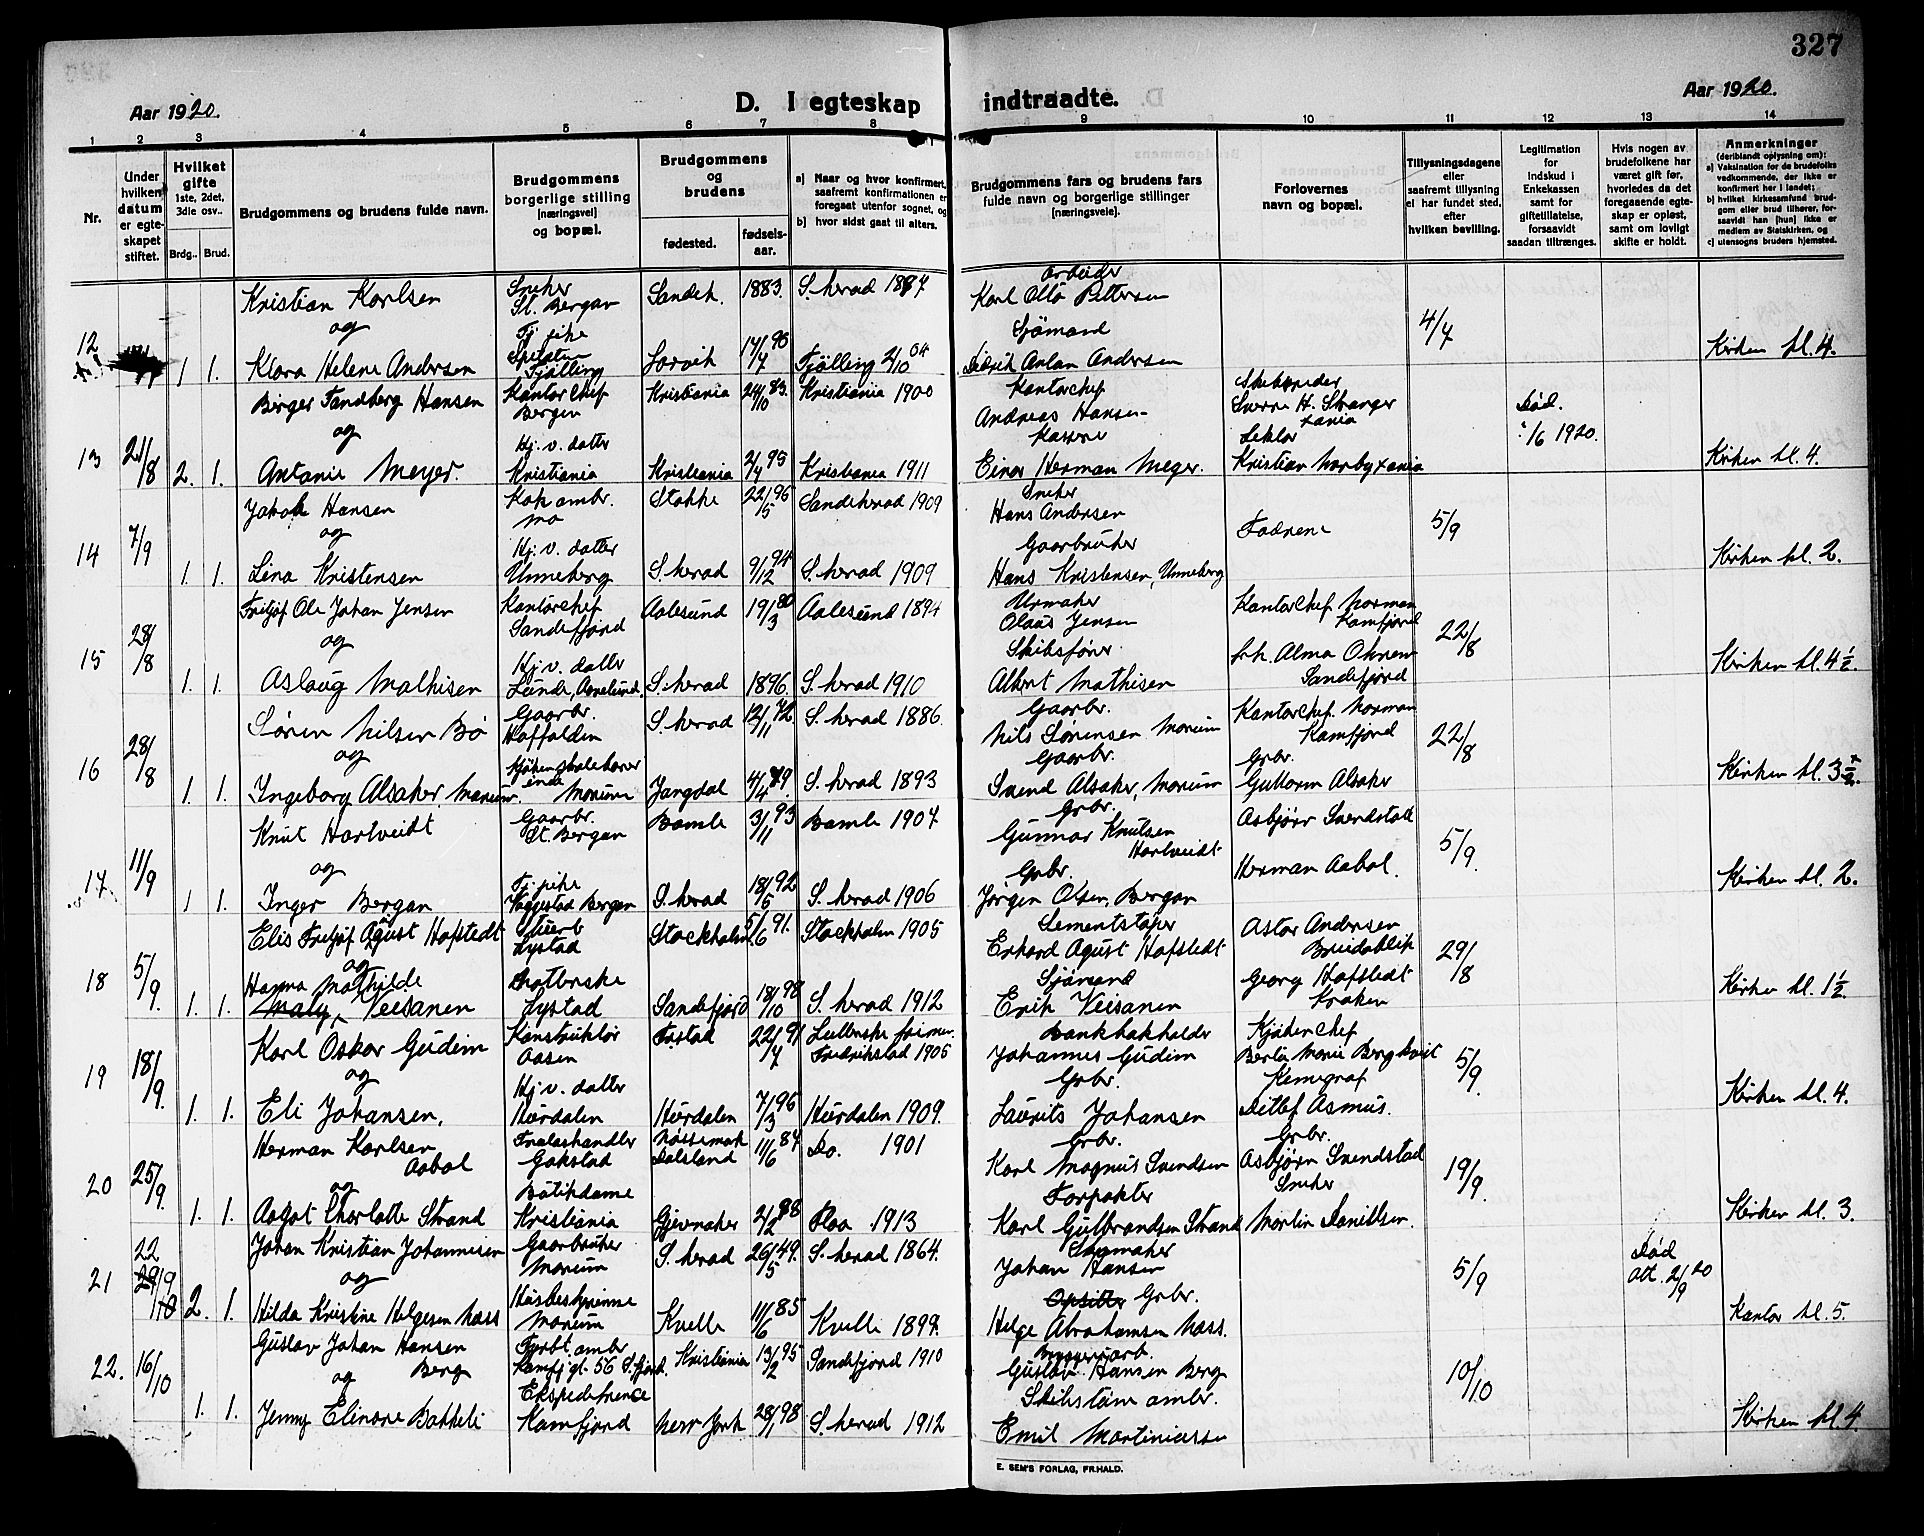 327
Aar 1920.
D. I egteskap indtraadte.
Aar 1920.
1 2 3 4 5 6 7 8 9 10 11 12 13 14
Nr.
Under hvilken datum er egteskapet stiftet.
Hvilket gifte 1ste, 2det, 3die osv..
Brdg.. Brud.
Brudgommens og brudens fulde navn.
Brudgommens borgerlige stilling (næringsvei) og bopæl.
Brudgommens og brudens
fødested.
fødsels-aar.
a) Naar og hvor konfirmert, saafremt konfirmationen er foregaat utenfor sognet, og
b) hvor sidst gaat til alters.
Brudgommens fars og brudens fars fulde navn og borgerlige stillinger (næringsveie).
Forlovernes navn og bopæl.
Tillysningsdagene eller saafremt tillysning ei har fundet sted, efter hvilken bevilling.
Legitimation for indskud i Enkekassen samt for giftetillatelse, forsaavidt saadan tiltrænges.
Hvis nogen av brudefolkene har været gift før, hvorledes da det foregaaende egteskap er opløst, samt om lovligt skifte er holdt.
Anmerkninger (deriblandt oplysning om):
a) Vaksination for de brudefolks vedkommende, der ikke er konfirmert her i landet;
b) hvilket kirkesamfund brudgom eller brud tilhører, forsaavidt han [hun] ikke er medlem av Statskirken, og
c) utensogns bruders hjemsted.
12
Kristian Karlsen
Sneker
St. Bergan
Sandeh. 1883. S. herad 1897
arbeider
Karl Otto Pettersen
4/7
og
Tj. pike
Fjølling
1 1. Klara Helene Andersen
Larvik 14/7 90 Tjølling 2/10 04
Sjømand
Didrik Anton Andersen
Kirken kl. 4.
13 21/8
Birger Tandberg Hansen
Kontorchef
Bergen
Kristiania 24/10 83. Kristiania 1900
Kontorchef
Andreas Hansen
Skibsreder
Sverre H. Stranger
Død.
1/6 1920.
og
2. 1. Antonie Meyer.
Hj. v. datter
Kristiania
Kristiania 2/4 95 Kristiania 1911
Einar Herman Meyer.
Lektor
Kristian Norby
Kirken kl. 4.
14 7/9
Jakob Hansen
Mo
Stokke 22/5 96 Sandeherad 1909
Sneker
Hans Andersen
Fadrene
5/9
og
1. 1. Lina Kristensen
Hj. v. datter
Unneberg
S. herad 9/12 94 S. herad 1909
Gaarbruker
Hans Kristensen, Unneberg
Kirken kl. 2.
15 28/8
Fritjof Ole Johan Jensen
Kontorchef
Sandefjord
Aalesund 19/3 80 Aalesund 1894
Urmaker
Olaus Jensen
Kontorchef Norman
Kamfjord
22/8
og
1. 1. Aslaug Mathisen
Hj. v. datter
S. herad 1896. S. herad 1910
Skibsfører.
Albert Mathisen
frk. Alma
Sandefjord
Kirken kl. 4½.
16 28/8
Søren Nilsen Bø
Gaarbr.
S. herad 12/11 72. S. herad 1886.
Gaarbr.
Nils Sørensen Morium
Kontorchef. Norman
Kamfjord
22/8
og
1. 1. Ingeborg Alsaker,
Morium
Jangdal 4/4 79. S. herad 1893
Gaarbr.
Svend Alsaker, Morium
Grbr.
Guttorm Alsaker
Kirken kl. 3½.
17 11/9
Knut Hartveidt
Gaarbr.
St. Bergan
Bamle 3/11 93 Bamle 1907
Grbr.
Gunnar Knutsen
Hartveidt
Asbjørn Svendstad
5/9.
og
1 1. Inger Bergan
Tj. pike
Bergan
S. herad 18/5 92 S. herad 1906
Grbr.
Jørgen Olsen, Bergan
Herman Aabol.
Kirken kl. 2.
18 5/9.
Elis Fritjof Agust Hofstedt
Lystad
Stockholm 5/6 91. Stockholm 1905
Sementstøper
Erhard Agust Hofstedt
Astor Andersen
Breidablik
29/8
og
Hanna Mathilde
1. 1. Veisanen
Lystad
Sandefjord 18/10 98 S. herad 1912
Sjømand
Erik Veisanen
Georg Hofstedt
Kraken
Kirken kl. 1½.
19 18/9.
Karl Oskar Gudim
Konstruktør
Aasen
22/4 91
Fredrikstad 1905
Johannes Gudim
Kjøkenchef
5/9.
og
1. 1. Eli Johansen,
Hj. v. datter
Hurdalen
Hurdalen 7/3 96 Hurdalen 1909.
Grbr.
Laurits Johansen
Ditlef Asmus.
Kirken kl. 4.
20 25/9.
Herman Karlsen
Aabol
Gokstad
Dalsland 11/6 84 Do. 1901
Grbr.
Karl Magnus Svendsen
Grbr.
Asbjørn Svendstad
19/9.
og
1. 1. Aagot Charlotte Strand
Kristiania
Gjevnaker 2/2 88 Flaa 1913
Forpakter
Karl Gulbrandsen Strand
Sneker
Martin Danielsen.
Kirken kl. 3.
21 22/9
Johan Kristian Johannesen
Gaarbruker
Morium
S. herad 26/5 49. S. herad 1864.
Johan Hansen
5/9
Død
Att. 2/9 20
og
2. 1. Hilda Kristine Helgesen Nass
Husbestyrinne
Morium
Kvelle 11/6 85 Kvelle 1899.
Grbr.
Helge Abrahamsen Nass.
Kantor kl. 5.
22. 16/10
Gustav Johan Hansen
Berg
Kristiania 13/2 95 Sandefjord 1910
Gustav Hansen Berg
10/10
og
1. 1. Jenny Elinore Bakkeli
Kamfjord
New York 28/1 98 S. herad 1912
Emil Martiniussen
Kirken kl. 4
E. SEM'S FORLAG, FR.HALD.